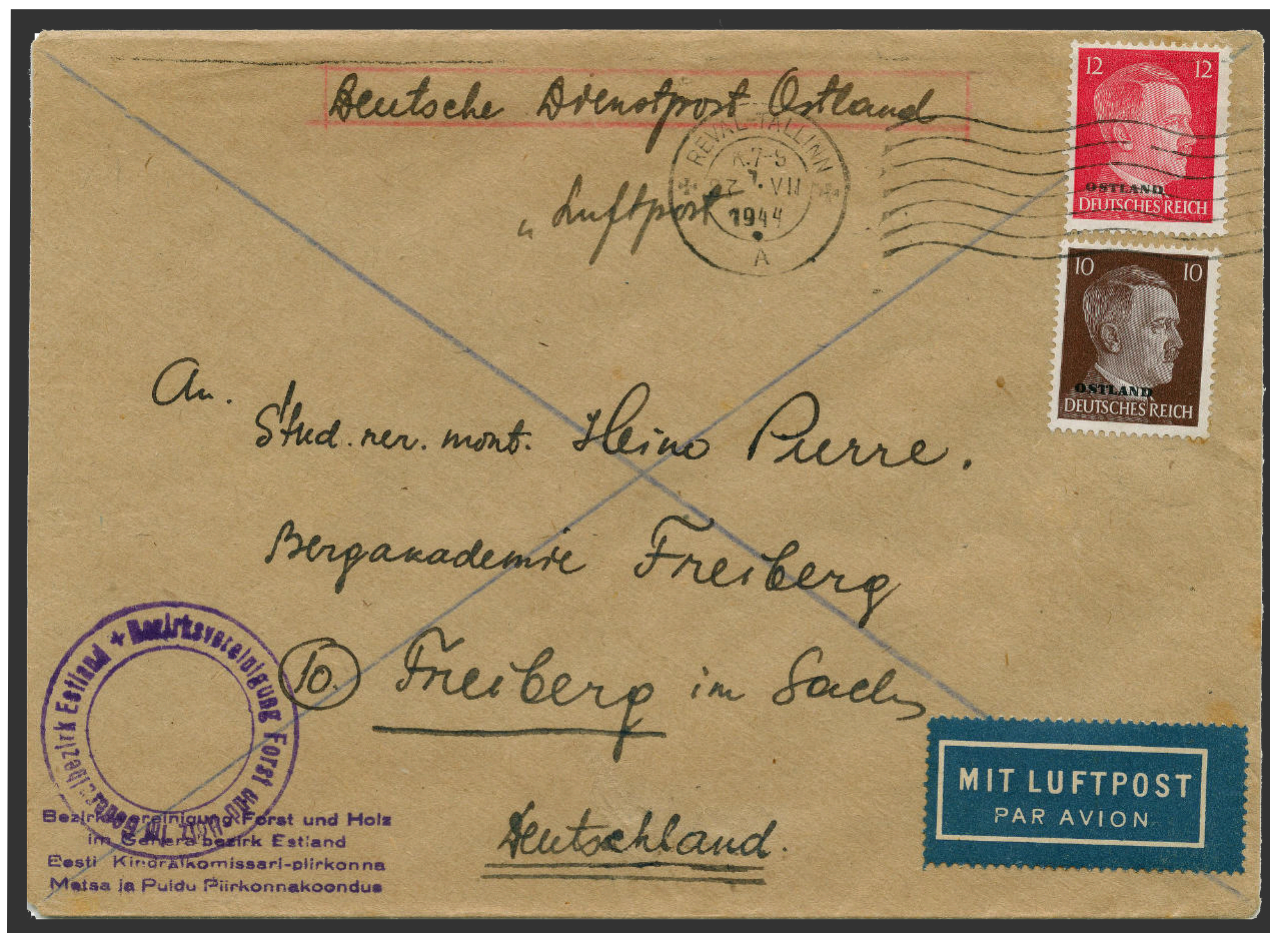 Deutsche Dienstpost Ostland
"Luftpost
REVAL-TALLINN
K.7-8
27. VII
1944
A
12 12
OSTLAND
DEUTSCHES REICH
10 10
OSTLAND
DEUTSCHES REICH
An.
Stud. rer. mont. Heino Pierre.
Bergakademie Freiberg
10. Freiberg im Sachs
Deutschland.
MIT LUFTPOST
PAR AVION
+ Bezirksvereinigung Forst und Holz im Generalbezirk Estland
Bezirksvereinigung Forst und Holz
im Generalbezirk Estland
Eesti Kindralkomissari-piirkonna
Metsa ja Puidu Piirkonnakoondus